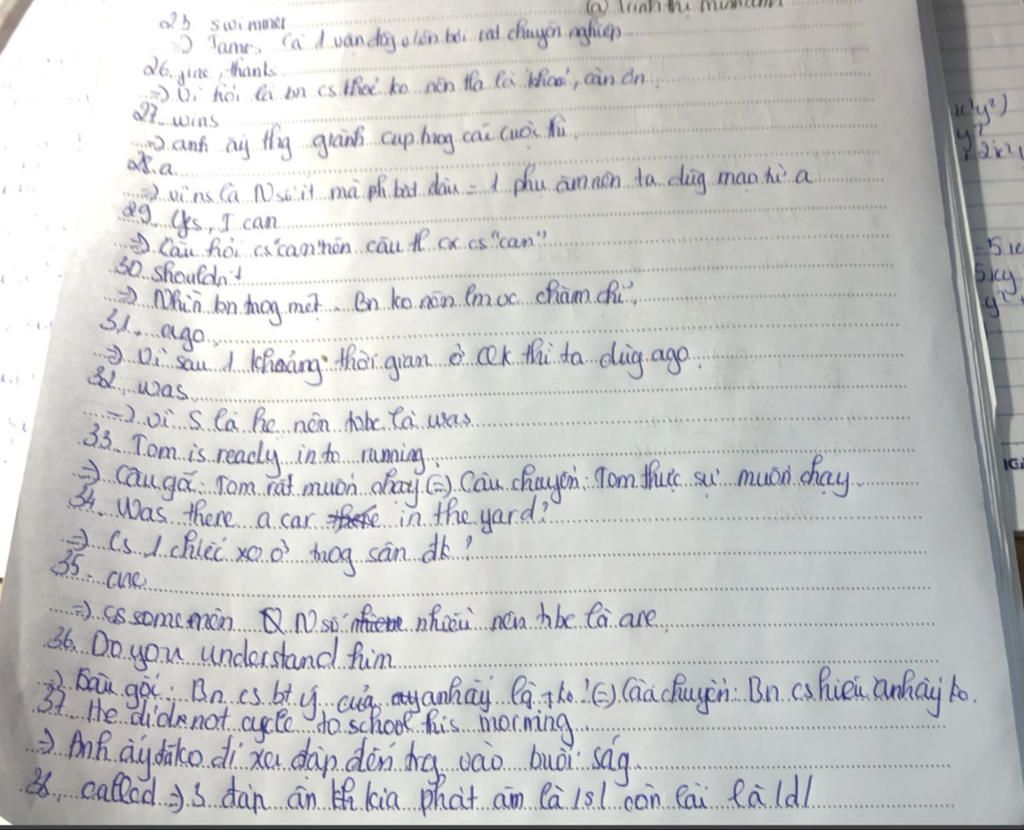 @ Trinh thi minhanh
23 swimmer
=) James là 1 vận động viên bơi rất chuyên nghiệp
26. fine, thanks
=) Vì hỏi là bn cs khoẻ ko nên tlà là "khoẻ", cản ơn.
27. wins
=) anh ấy thg giành cup trog cái cuộc thi.
28. a
=) vì ns là N số ít mà ph bắt đầu = 1 phụ âm nên ta dùg mạo từ a
29. Yes, I can
=) Câu hỏi cs "can" nên câu tl cx cs "can"
30. Shouldn't
=) Nhìn bn trog mệt. Bn ko nên lm vc chăm chỉ.
31. ago
=) Vì sau 1 khoảng thời gian ở QK thì ta dùg ago.
32. was
=) vì S là he nên tobe là was
33. Tom is ready into running.
=) Câu gốc: Tom rất muốn chạy (=) Câu chuyển: Tom thực sự muốn chạy
34. Was there a car there in the yard?
=) Cs 1 chiếc xe ở trog sân đk?
35. are
=) cs some mên N số nhiều nên tbe là are.
36. Do you understand him
=) Câu gốc: Bn cs bt ý của anh ấy là j ko? (=) Câu chuyển: Bn cs hiểu anh ấy ko.
37. He did not cycle to school this morning
=) Anh ấy đã ko đi xe đạp đến trg vào buổi ság
38. called =) 3 đáp án kh kia phát âm là /s/ còn lại là /d/
x²y²)
y²
2x²y
5xy
y²